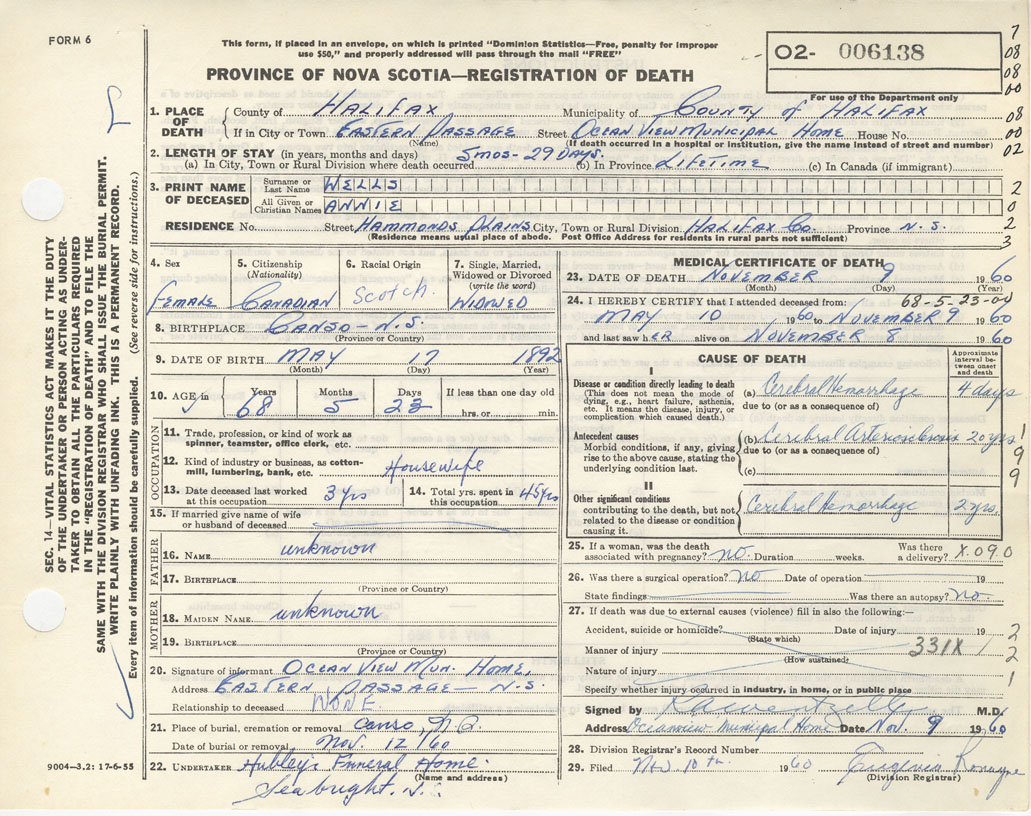 FORM 6
This form, if placed in an envelope, on which is printed "Dominion Statistics—Free, penalty for improper
use $50," and properly addressed will pass through the mail "FREE"
PROVINCE OF NOVA SCOTIA—REGISTRATION OF DEATH
O2- 006138
For use of the Department only
7
08
08
00
08
00
02
2
0
2
3
1. PLACE OF DEATH
County of HALIFAX Municipality of COUNTY OF HALIFAX
If in City or Town EASTERN PASSAGE Street OCEAN VIEW MUNICIPAL HOME House No.
(Name) (If death occurred in a hospital or institution, give the name instead of street and number)
2. LENGTH OF STAY (in years, months and days) 5 mos - 29 DAYS.
(a) In City, Town or Rural Division where death occurred (b) In Province LIFETIME (c) In Canada (if immigrant)
3. PRINT NAME OF DECEASED
Surname or Last Name WELLS
All Given or Christian Names ANNIE
RESIDENCE No. Street HAMMONDS PLAINS City, Town or Rural Division HALIFAX Co. Province N.S.
(Residence means usual place of abode. Post Office Address for residents in rural parts not sufficient)
4. Sex
Female
5. Citizenship (Nationality)
CANADIAN
6. Racial Origin
Scotch
7. Single, Married, Widowed or Divorced (write the word)
WIDOWED
8. BIRTHPLACE CANSO - N.S.
(Province or Country)
9. DATE OF BIRTH MAY 17 1892
(Month) (Day) (Year)
10. AGE in Years Months Days If less than one day old
68 5 23 hrs. or min.
OCCUPATION
11. Trade, profession, or kind of work as
spinner, teamster, office clerk, etc.
12. Kind of industry or business, as cotton-
mill, lumbering, bank, etc. Housewife
13. Date deceased last worked
at this occupation 3 yrs
14. Total yrs. spent in
this occupation 45 yrs
15. If married give name of wife
or husband of deceased
FATHER
16. NAME unknown
17. BIRTHPLACE
(Province or Country)
MOTHER
18. MAIDEN NAME unknown
19. BIRTHPLACE
(Province or Country)
20. Signature of informant OCEAN VIEW MUN. HOME,
Address EASTERN PASSAGE - N.S.
Relationship to deceased NONE.
21. Place of burial, cremation or removal Canso, N.S.
Date of burial or removal Nov. 12/60
22. UNDERTAKER Hubley's Funeral Home.
(Name and address)
Seabright, N.S.
MEDICAL CERTIFICATE OF DEATH
23. DATE OF DEATH NOVEMBER 9 1960
(Month) (Day) (Year)
24. I HEREBY CERTIFY that I attended deceased from: 68-5-23-04
MAY 10 1960 to NOVEMBER 9 1960
and last saw her alive on NOVEMBER 8 1960
CAUSE OF DEATH
Approximate interval between onset and death
I
Disease or condition directly leading to death
(This does not mean the mode of
dying, e.g., heart failure, asthenia,
etc. It means the disease, injury, or
complication which caused death.)
(a) Cerebral Hemorrhage 4 days
due to (or as a consequence of)
Antecedent causes
Morbid conditions, if any, giving
rise to the above cause, stating the
underlying condition last.
(b) Cerebral Arteriosclerosis 20 yrs
due to (or as a consequence of)
(c)
1
9
9
II
Other significant conditions
contributing to the death, but not
related to the disease or condition
causing it.
Cerebral Hemorrhage 2 yrs.
25. If a woman, was the death
associated with pregnancy? no. Duration weeks. Was there a delivery? X.090
26. Was there a surgical operation? no Date of operation 19
State findings Was there an autopsy? no.
27. If death was due to external causes (violence) fill in also the following:—
Accident, suicide or homicide? Date of injury 19
(State which)
Manner of injury 331X
(How sustained)
Nature of injury
2
2
1
Specify whether injury occurred in industry, in home, or in public place
Signed by M.D.
Address Oceanview Municipal Home Date Nov. 9 1960
28. Division Registrar's Record Number
29. Filed Nov 10th. 1960 Eugenia
(Division Registrar)
SEC. 14—VITAL STATISTICS ACT MAKES IT THE DUTY
OF THE UNDERTAKER OR PERSON ACTING AS UNDER-
TAKER TO OBTAIN ALL THE PARTICULARS REQUIRED
IN THE "REGISTRATION OF DEATH" AND TO FILE THE
SAME WITH THE DIVISION REGISTRAR WHO SHALL ISSUE THE BURIAL PERMIT.
WRITE PLAINLY WITH UNFADING INK. THIS IS A PERMANENT RECORD.
Every item of information should be carefully supplied. (See reverse side for instructions.)
9004—3.2: 17-6-55